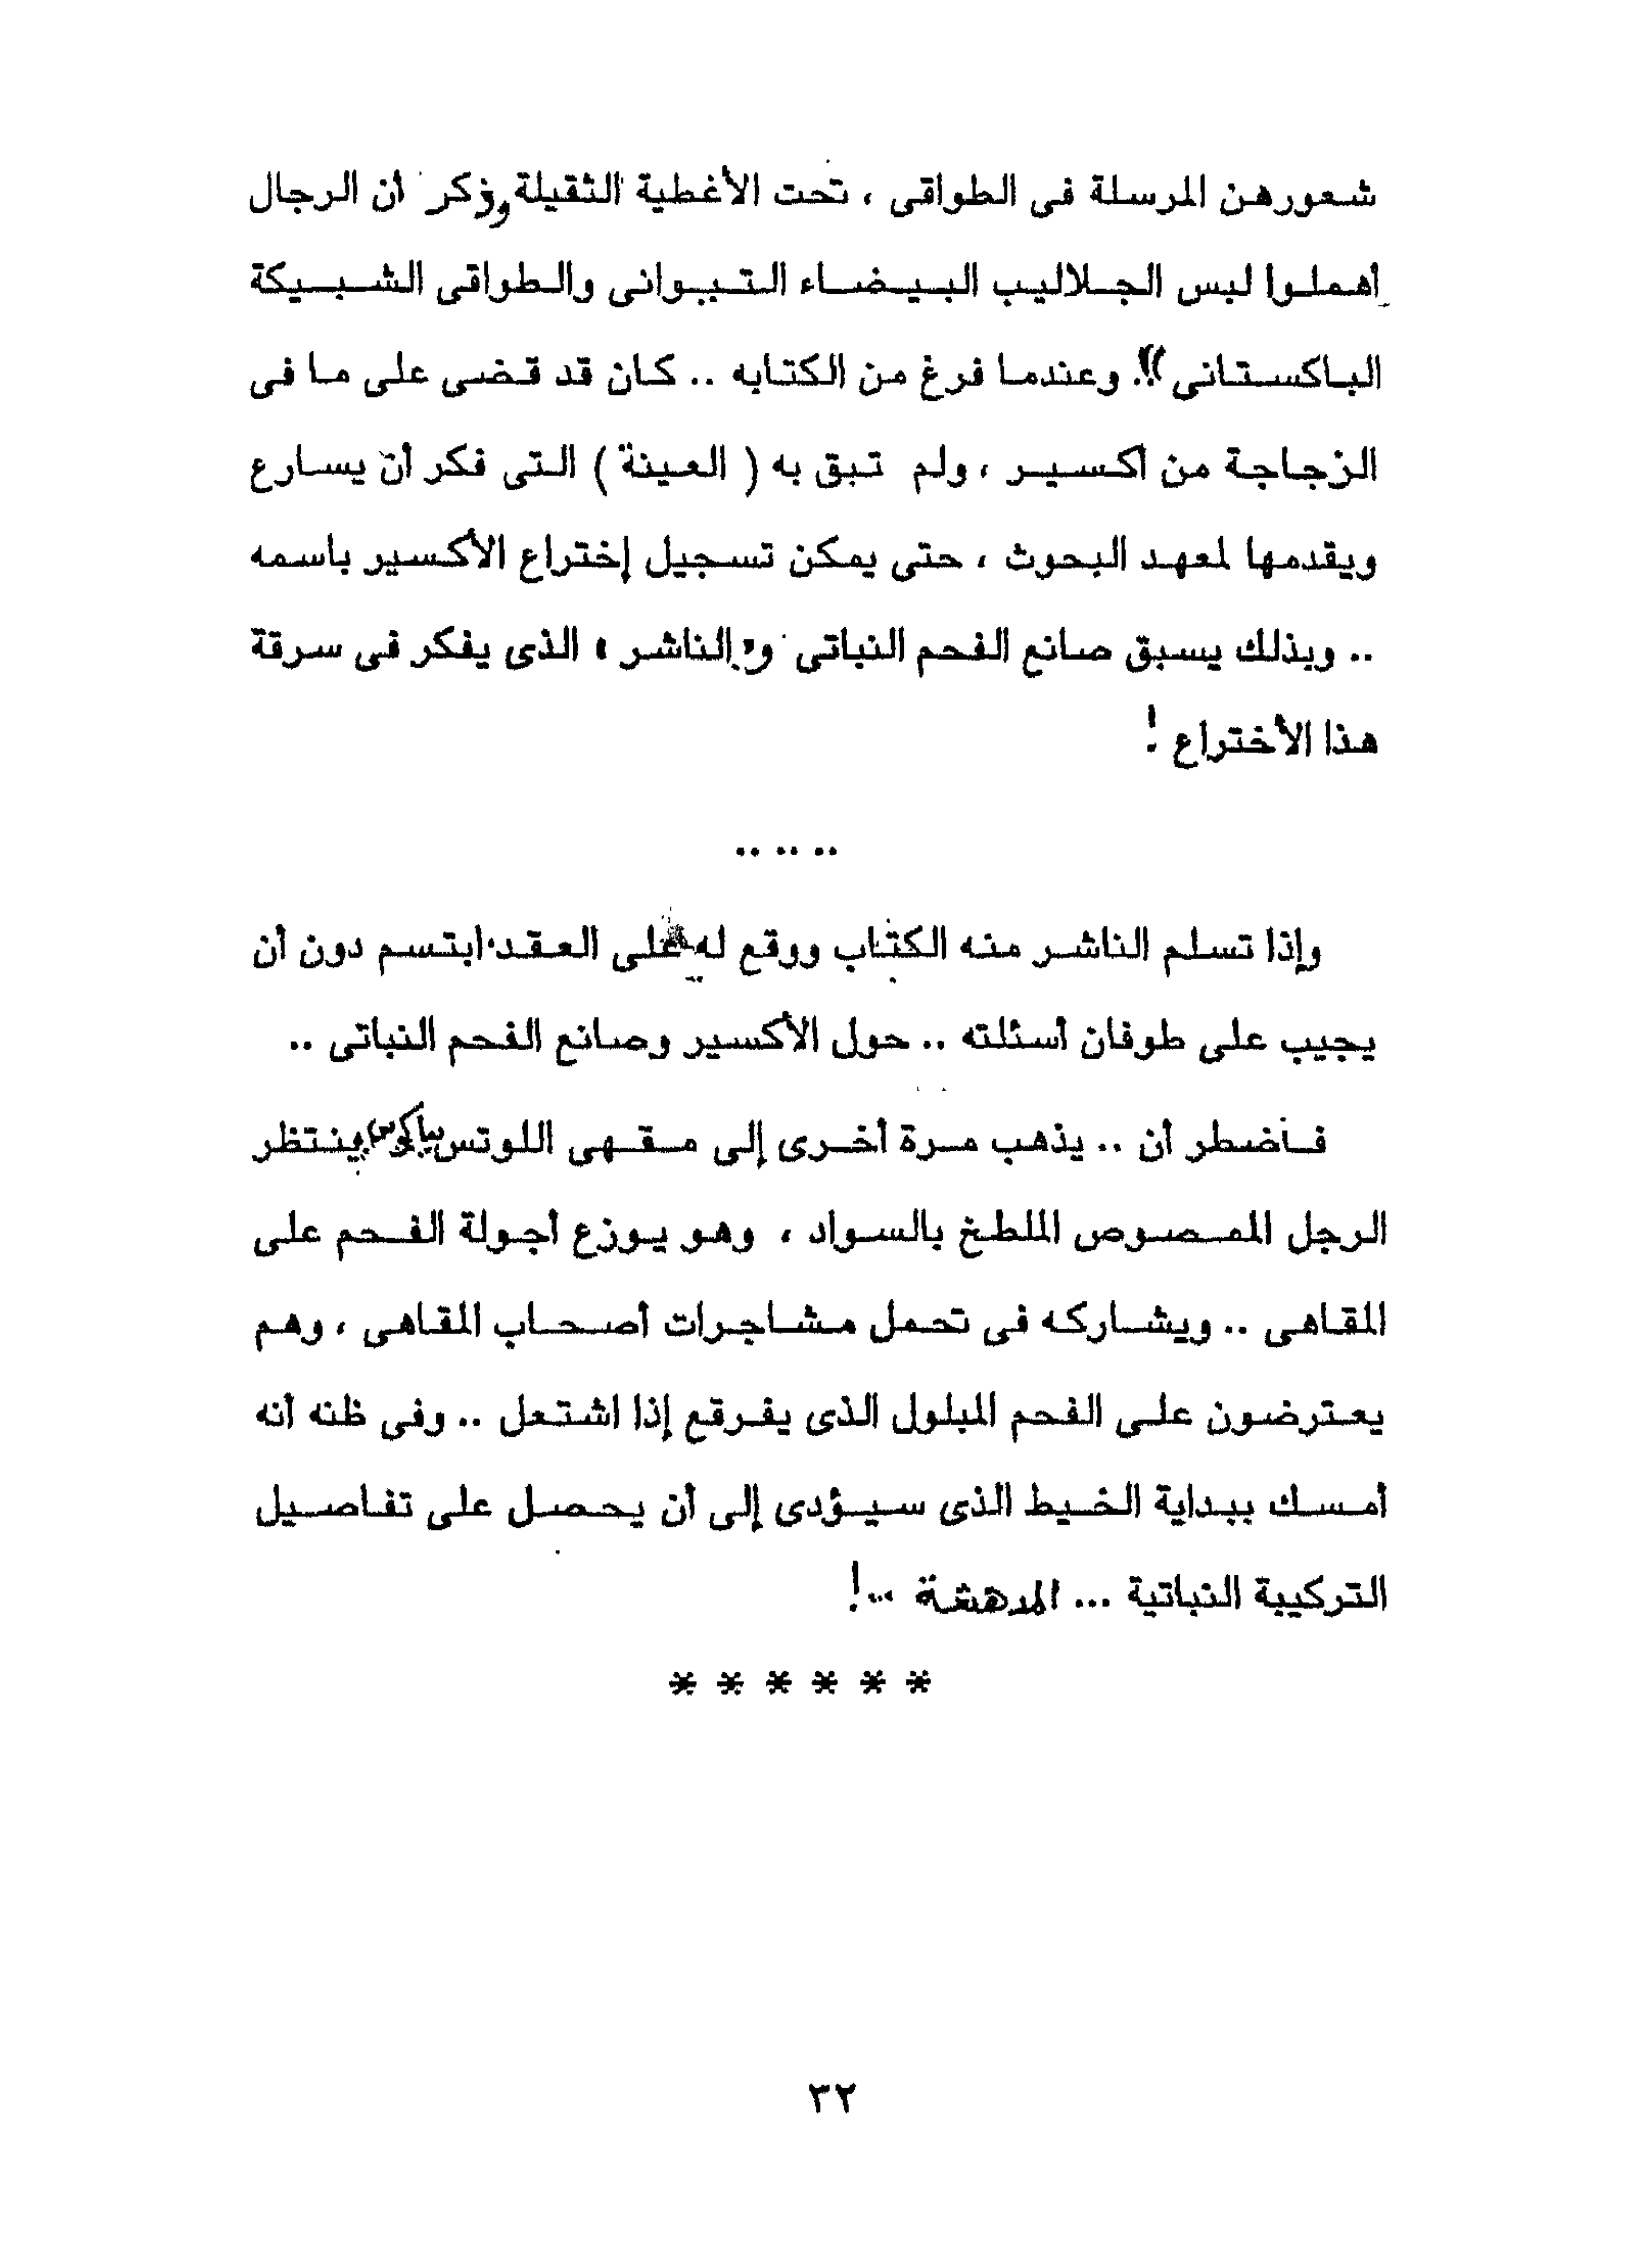 شعورهن المرسلة فى الطواقى ، تحت الأغطية الثقيلة وذكر أن الرجال
أهملوا لبس الجلاليب البيضاء التيوانى والطواقى الشبيكة
الباكستانى )) . وعندما فرغ من الكتابه .. كان قد قضى على ما فى
الزجاجة من أكسير ، ولم تبق به ( العينة ) التى فكر أن يسارع
ويقدمها لمعهد البحوث ، حتى يمكن تسجيل إختراع الأكسير باسمه
.. وبذلك يسبق صانع الفحم النباتى و " الناشر " الذى يفكر فى سرقة
هذا الأختراع !
.. .. ..
وإذا تسلم الناشر منه الكتاب ووقع له على العقد ابتسم دون أن
يجيب على طوفان أسئلته .. حول الأكسير وصانع الفحم النباتى ..
فأضطر أن .. يذهب مرة أخرى إلى مقهى اللوتس ينتظر
الرجل الممصوص الملطخ بالسواد ، وهو يوزع أجولة الفحم على
المقاهى .. ويشاركه فى تحمل مشاجرات أصحاب المقاهى ، وهم
يعترضون على الفحم المبلول الذى يفرقع إذا اشتعل .. وفى ظنه أنه
أمسك ببداية الخيط الذى سيؤدى إلى أن يحصل على تفاصيل
التركيبة النباتية ... المدهشة ...!
* * * * * *
٣٢